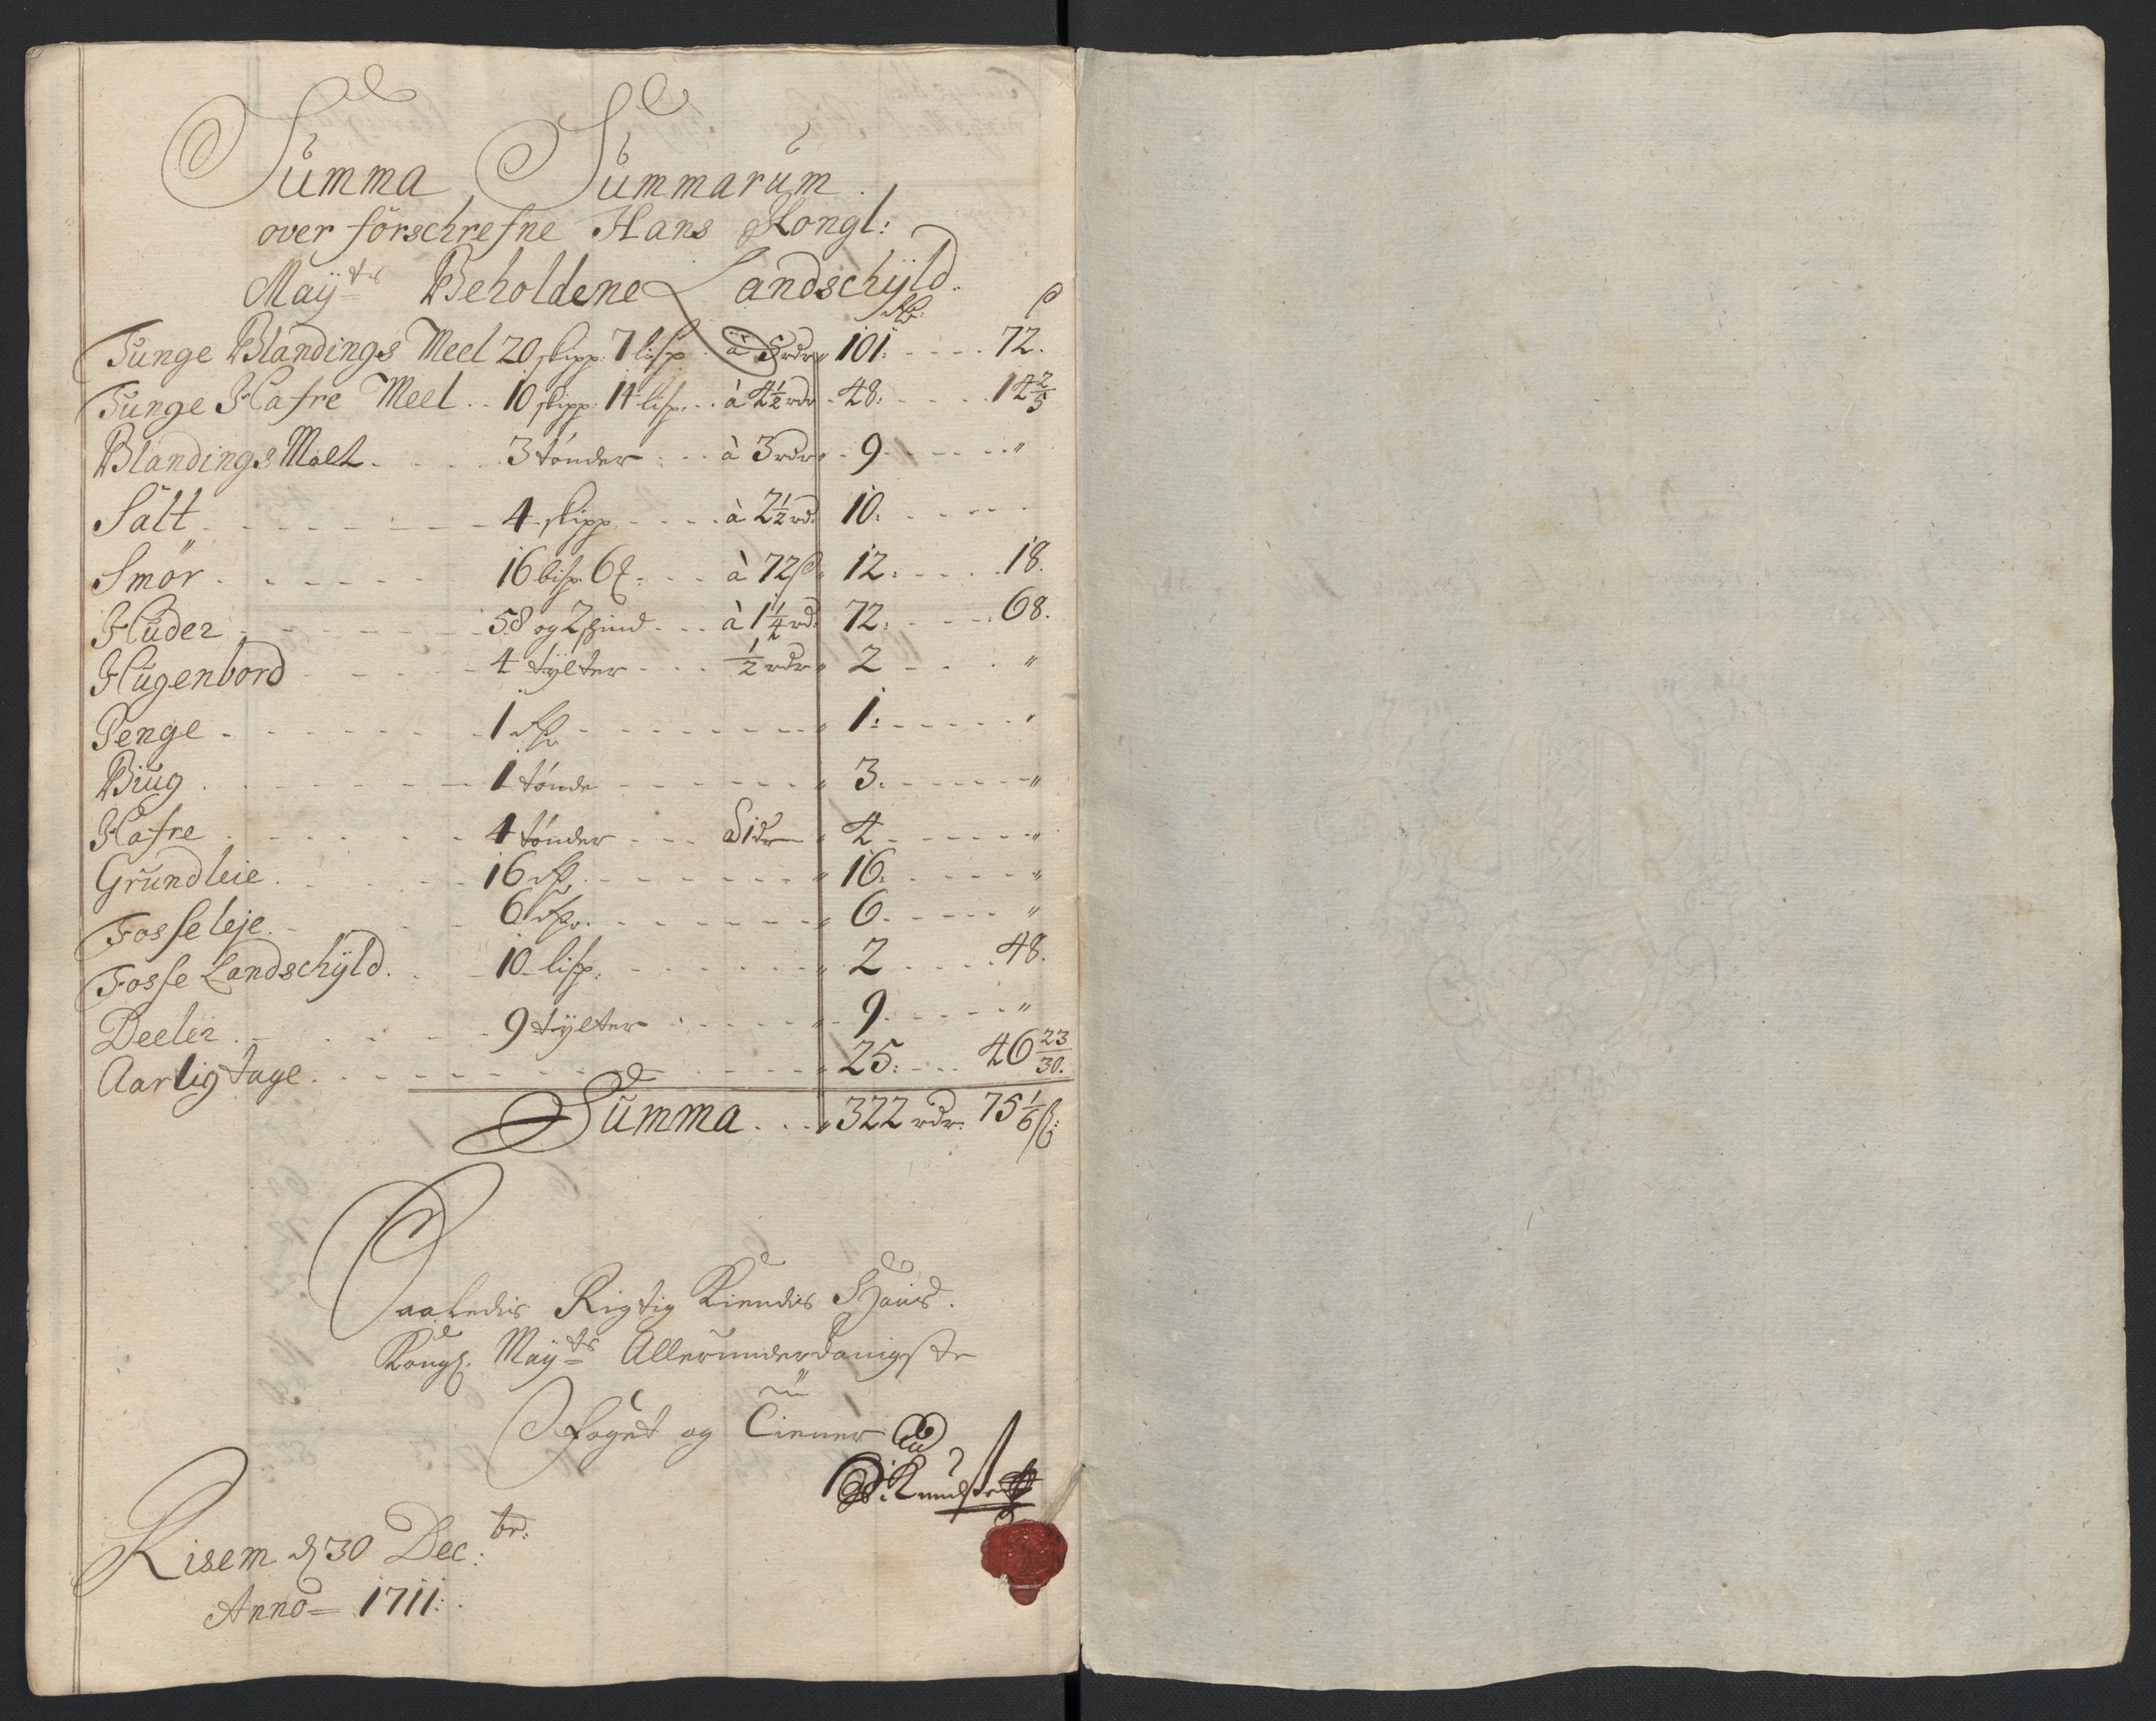 Summa Summarum.
over forschrefne Hans Kongl:
Maÿ:ts Beholdene Landschÿld.
Rdr: ß
Tunge Blandings Meel 20 skipp: 7 lisp. à 5 rdr 101: 72.
Tunge Hafre Meel 10 skipp: 14 lisp. à 4½ rdr 48: 14 2/5
Blandings Malt 3 tønder à 3 rdr 9 "
Salt 4 skipp à 2½ rd: 10:
Smör 16 bisp. 6 ℔ à 72 ß 12: 18.
Huder 58 og 2 skind à 1¼ rd: 72: 68.
Hugenbord 4 tÿlter ½ rdr 2 "
Penge 1 rdr 1: "
Biug 1 tønde 3: "
Hafre 4 tønder à 1 dr 4 "
Grundleie 16 rdr 16: "
Fosse leje 6 rdr. 6 "
Fosse Landschÿld 10 lisp. 2 48.
Deeler 9 tÿlter 9 "
Aarlig tage 25: 46 23/30.
Summa 322 rdr: 75 1/6 ß:
Saaledis Rigtig Kiendis Hans.
Kongl. Maÿ:ts Allerunderdanigste
Foget og Tiener
Risem d 30 Dec:br:
Anno 1711: